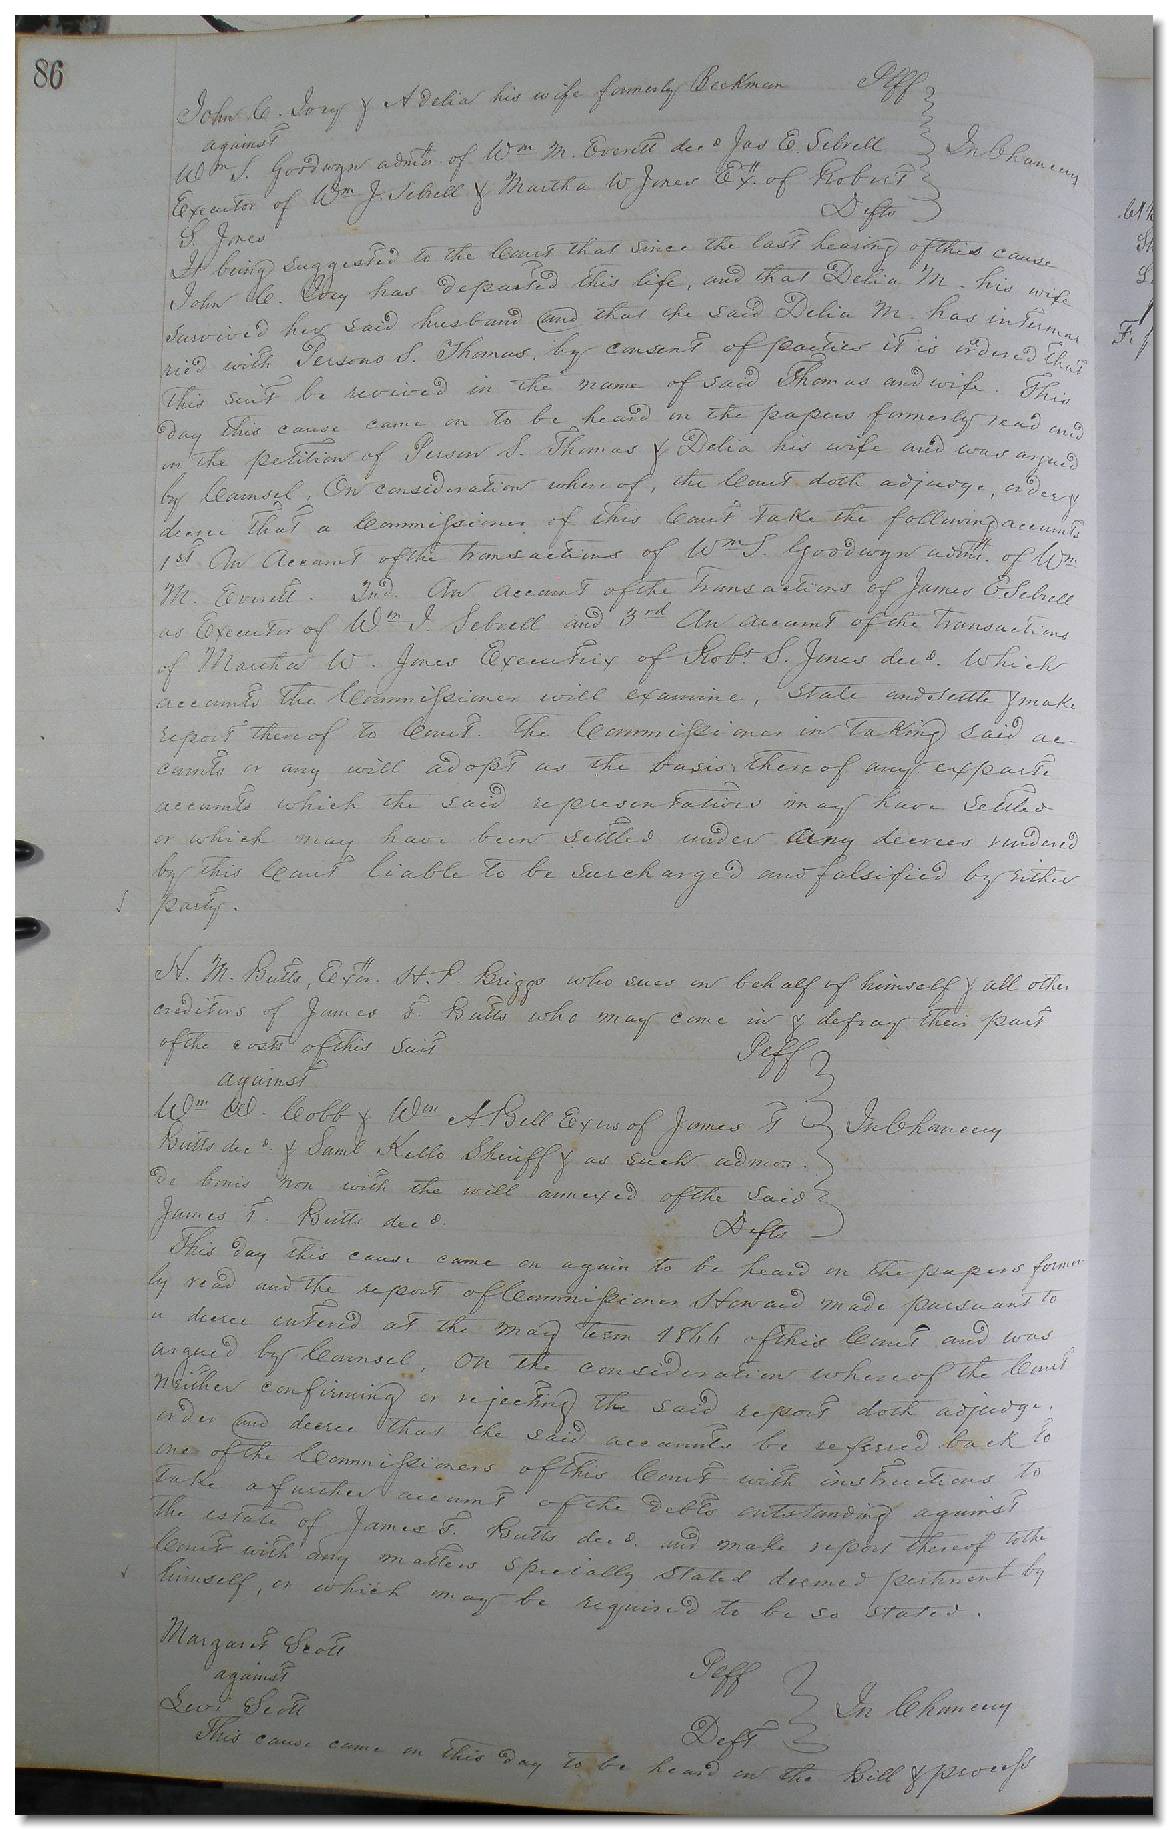 86
John C. Ivey & Adelia his wife formerly Beckman Plff
against
Wm. S. Goodwyn admr. of Wm M. Everett decd Jas E. Sebrell In Chancery
Executor of Wm J. Sebrell & Martha W Jones Exx. of Robert
S. Jones Defts
It being suggested to the Court that since the last hearing of this cause
John C. Ivey has departed this life, and that Delia M. his wife
survived her said husband and that the said Delia M. has intermar
ried with Persons S. Thomas, by consent of parties it is ordered that
this suit be revived in the name of said Thomas and wife. This
day this cause came on to be heard on the papers formerly read and
on the petition of Person S. Thomas & Delia his wife and was argued
by Counsel. On consideration whereof, the Court doth adjudge, order &
decree that a Commissioner of this Court take the following accounts
1st An Account of the transactions of Wm S. Goodwyn admr. of Wm
M. Everett. 2nd. An account of the transactions of James E Sebrell
as Executor of Wm J. Sebrell and 3rd An account of the transactions
of Martha W. Jones Executrix of Robt S. Jones decd. Which
accounts the Commissioner will examine, state and settle & make
report thereof to Court. The Commissioner in taking said ac-
counts or any will adopt as the basis thereof any exparte
accounts which the said representatives may have settled
or which may have been settled under any decrees rendered
by this Court liable to be surcharged and falsified by either
party.
H. M. Butts, Exor. H. P. Briggs who sues on behalf of himself & all other
creditors of James T. Butts who may come in & defray their part
of the costs of this suit Plff
against
Wm W. Cobb & Wm A Bell Exors of James T In Chancery
Butts decd. & Saml Kello Sheriff & as such admor.
de bonis non with the will annexed of the said
James T. Butts decd. Defts
This day this cause came on again to be heard on the papers former
ly read and the report of Commissioner Howard made pursuant to
a decree entered at the May term 1866 of this Court and was
argued by Counsel. On the consideration whereof the Court
neither confirming or rejecting the said report doth adjudge,
order and decree that the said accounts be referred back to
one of the Commissioners of this Court with instructions to
take a further account of the debts outstanding against
the estate of James T. Butts decd. and make report thereof to the
Court with any matters specially stated deemed pertinent by
himself, or which may be required to be so stated.
Margaret Scott Plff
against In Chancery
Levi Scott Deft
This cause came on this day to be heard on the Bill & process